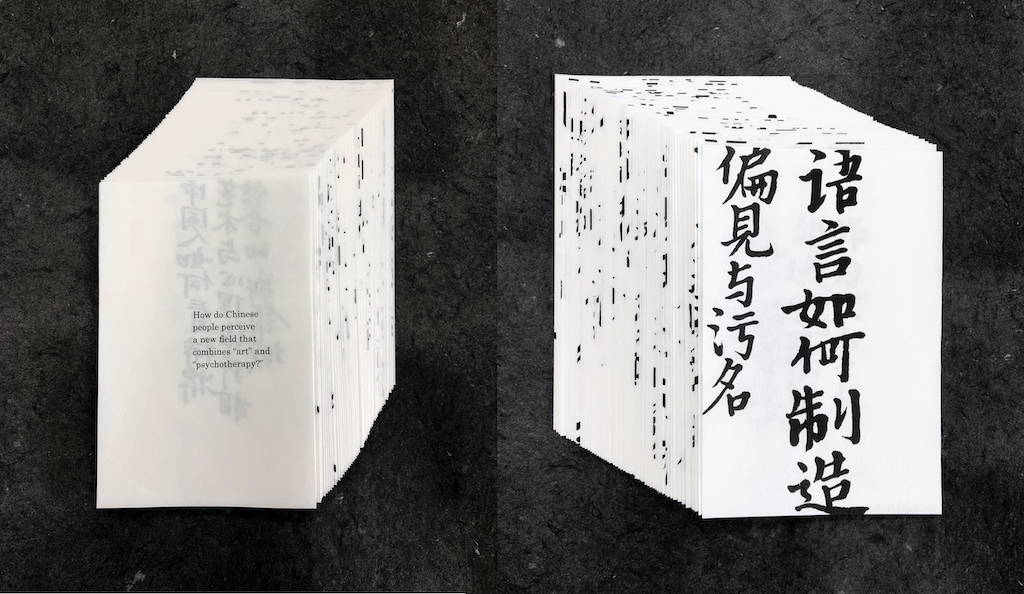 How do Chinese
people perceive
a new field that
combines “art” and
“psychotherapy?”
语言如何制造
偏見与污名